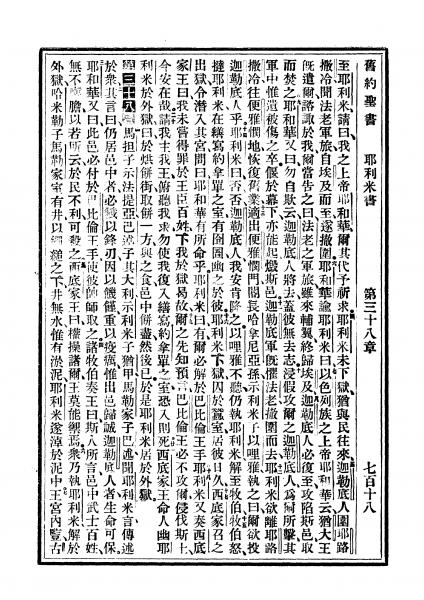 舊約聖書　耶利米書　第三十八章　七百十八
至耶利米請曰我之上帝耶和華爾其代予祈求耶利米未下獄猶與民往來迦勒底人圍耶路
撒冷聞法老軍旅自埃及而至遂撤圍耶和華諭耶利米曰以色列族之上帝耶和華云猶大王
旣遣爾諮諏於我爾當告之曰法老之軍旅雖來輔翼終歸埃及迦勒底人必復至攻陷斯邑取
而焚之耶和華又曰勿自欺云迦勒底人將去蓋彼無去志浸假攻爾之迦勒底人爲爾所擊其
軍中惟遺被傷之卒偃於幕下亦能起燬斯邑迦勒底軍旣懼法老撤圍而去耶利米欲離耶路
撒冷往便雅憫地恢復舊業適出便雅憫門閽長哈拿尼亞孫示利米子以哩雅執之曰爾欲投
迦勒底人乎耶利米曰否否迦勒底人我安肯降之以哩雅不聽仍執耶利米解至牧伯牧伯怒
撻耶利米在繕寫約拿單之室有囹圄幽之於彼耶利米下獄囚於蠶室居彼日久西底家召之
出獄令潛入其宮問曰耶和華有所命乎耶利米曰有爾必解於巴比倫王手耶利米又奏西底
家王曰我未嘗得罪於王臣百姓下我於獄易故爾之先知預言巴比倫王必不攻爾侵伐斯土
今安在哉請我主我王俯聽我求勿使我復入繕寫約拿單之室恐入則死西底家王命人幽耶
利米於外獄日於烘餅街取餅一方與之食邑中餅盡然後已於是耶利米居於外獄
第三十八章 馬担子示法提亞巴淳子其大利示利米子猶甲馬勒家子巴述聞耶利米言傳述
於衆其言曰仍居邑中者必亡以鋒刃因以饑饉重以疫癘惟出邑歸誠迦勒底人者生命可保
耶和華又曰此邑必付於巴比倫王手使彼帥師取之諸牧伯奏王曰斯人所言邑中武士百姓
無不喪膽以若所云於民不利可殺之西底家王曰權操諸爾王莫能禦焉衆乃執耶利米解於
外獄哈米勒子馬勒家室有井以繩縋之下井無水惟有淤泥耶利米遂淖於泥中王宮內豎古